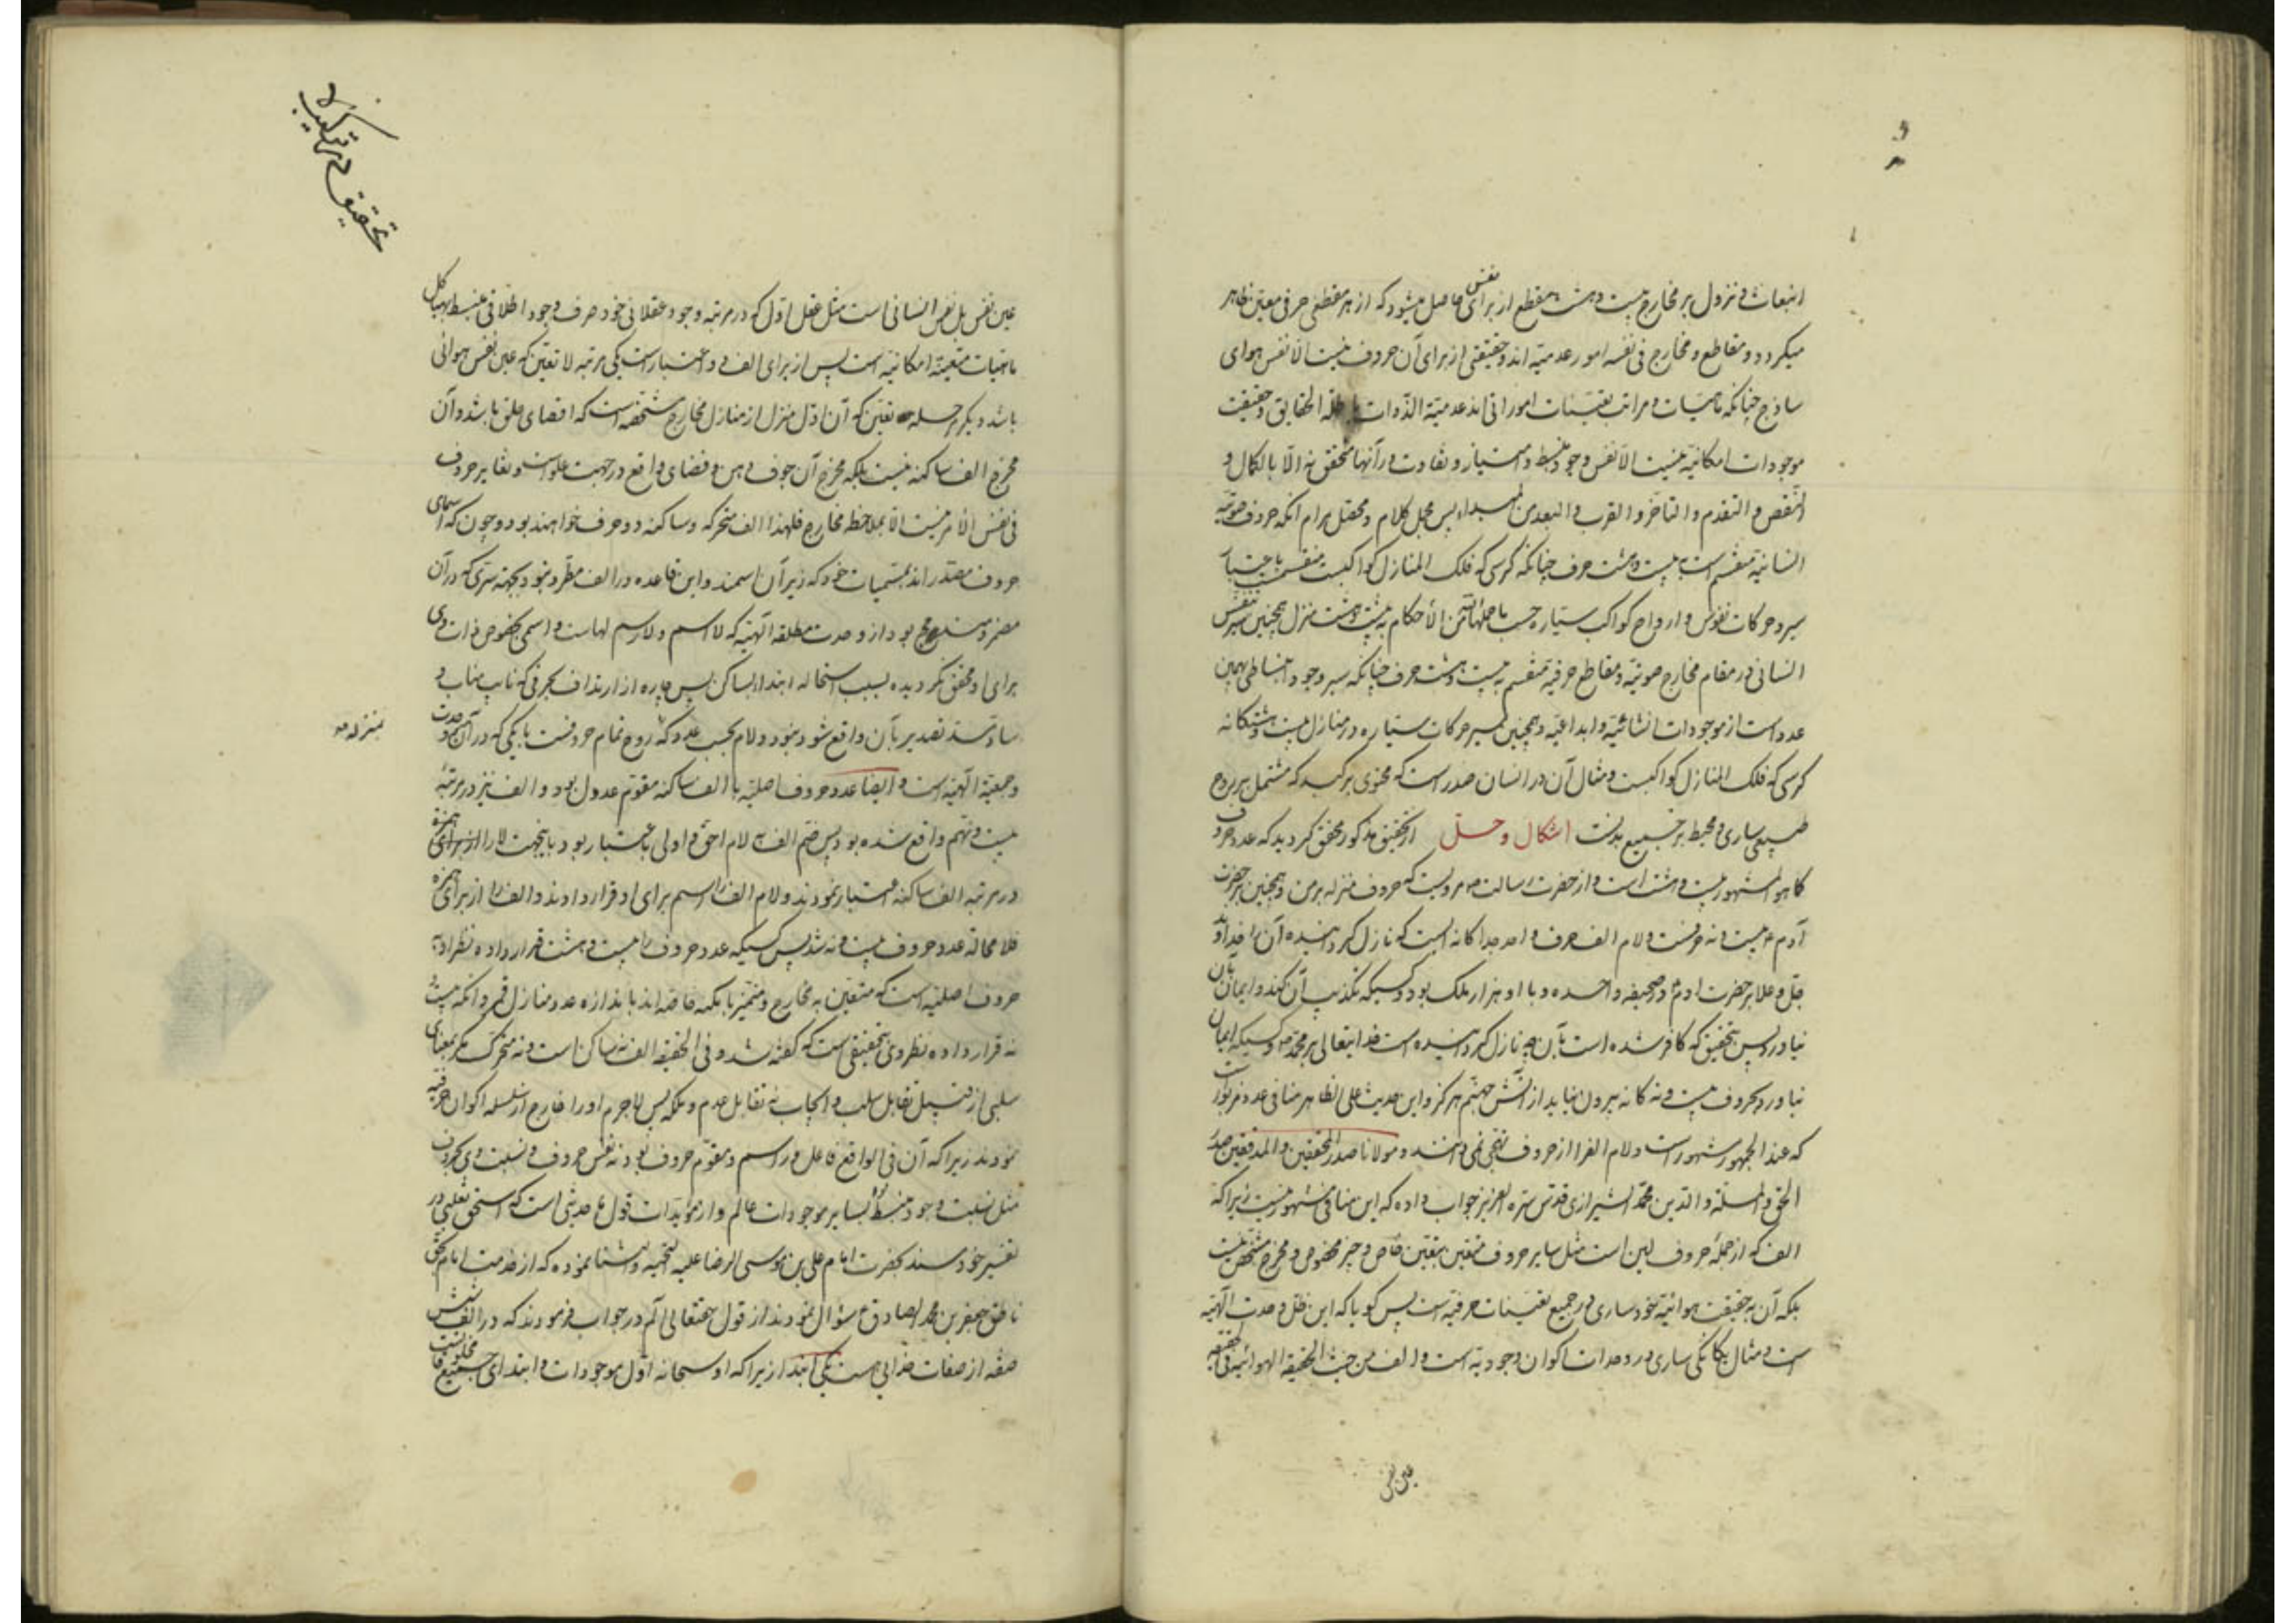 انبعاث و نزول بر مخارج بیست و هشت مقطع از برای نفس حاصل میشود که از هر مقطعی حرفی معین ظاهر
میکردد و مقاطع و مخارج فی نفسه امور عدمیه اند و حقیقتی از برای آن حروف نیست الا نفس هوای
ساذج چنانکه ماهیات و مراتب تعینات اموراتی اند عدمیة الذوات باطلة الحقایق و حقیقت
موجودات امکانیه نیست الا نفس وجود منبسط و امتیاز و تفاوت در آنها متحقق نه الا بالکمال و
النقص و التقدم و التاخر و القرب و البعد من المبداء پس مجمل کلام و محصل مرام آنکه حروف صوتیه
انسانیه منقسم است به بیست و هشت حرف چنانکه کرسی که فلک المنازل کواکبست منقسمست باعتبار
سیر و حرکات نفوس و ارواح کواکب سیاره حسب ما جعلها متقن الأحکام به بیست و هشت منزل همچنین سیر نفس
انسانی در مقام مخارج صوتیه و مقاطع حرفیه منقسم به بیست و هشت حرف چنانکه سیر وجود انبساطی بهمین
عدد است از موجودات انشائیه و ابداعیه و همچنین سیر حرکات سیاره در منازل بیست و هشتکانه
کرسی که فلک المنازل کواکبست و مثال آن در انسان صدر است که محتوی بر کبد که مشتمل بر روح
طبیعی ساری و محیط بر جمیع بدنست اشکال و حل از تحقیق مذکور محقق کردید که عدد حروف
کما هو المشهور بیست و هشت است و از حضرت رسالت ص مرویست که حروف منزله بر من و همچنین بر حضرت
آدم ع بیست و نه حرفست و لام الف حرف واحد جداکانه است که نازل کردانیده آن را خداوند
جل و علا بر حضرت آدم ع در صحیفه واحده و با او هزار ملک بود و کسیکه تکذیب آن کند و ایمان بآن
نیاورد پس بتحقیق که کافر شده است بآن چه نازل کردانیده است خدایتعالی بر محمد ص و کسیکه ایمان
نیاورد بحروف بیست و نه کانه بیرون نیاید از آتش جهنم هرکز و این حدیث علی الظاهر منافی عدد مزبور است
که عند الجمهور مشهور است و لام الف را از حروف تهجی نمی دانند و مولانا صدر المحققین و المدققین صدر
الحق و الملة و الدین محمد الشیرازی قدس سره العزیز جواب داده که این منافی مشهور نیست زیرا که
الف که از جمله حروف لین است مثل سایر حروف متعین بتعین خاص و حیز مخصوص و مخرج مشخص نیست
بلکه آن بحقیقت هوائیه خود ساری در جمیع تعینات حرفیه است پس کویا که این ظل وحدت آلهیه
است و مثال یکانکی ساری در وحدات اکوان وجودیه است و الف من حیث الحقیقة الهوائیه فی الحقیقه
عین نفس
تحقیق در ترکیب لا
عین نفس بل نفس انسانی است مثل عقل اول که در مرتبه وجود عقلانی خود صرف وجود اطلاقی منبسط بهیاکل
ماهیات متعینة امکانیه است پس از برای الف دو اعتبار است یکی مرتبه لا تعین که عین نفس هوائی
باشد دیکر مرحله تعین که آن اول منزل از منازل مخارج مشخصه است که اقصای حلق باشد و آن
مخرج الف ساکنه نیست بلکه مخرج آن جوف دهن و فضای واقع در جهت علو است و تغایر حروف
فی نفس الامر نیست الا بملاحظه مخارج فلهذا الف متحرکه و ساکنه دو حرف خواهند بود و چون که اسمای
حروف مصدر اند بمسمیات خود که زیر آن اسمند و این قاعده در الف مطرد نبود بجهة سری که در آن
مضمر و مندمج بود از وحدت مطلقه الهیه که لا اسم و لا رسم لهاست و اسمی بخصوص ذات وی
برای او محقق نکردیده بسبب استحاله ابتدا بساکن پس چاره از ارتداف بحرفی که نایب مناب و
ساد مسد تقدیر بآن واقع شود نبود و لام بحسب عدد که روح تمام حروفست با یکی که در آن وحدت
بمنزله
و جمعیة الهیه است و ایضا عدد حروف اصلیه با الف ساکنه مقوم عدد ل بود و الف نیز در مرتبه
بیست و نهم واقع شده بود پس ضم الف به لام احق و اولی باعتبار بود باینجهت لا را از برای همزه
در مرتبه الف ساکنه اعتبار نمودند و لام الف را اسم برای او قرار دادند و الف را از برای همزه
فلا محاله عدد حروف بیست و نه شد پس کسیکه عدد حروف را بیست و هشت قرار داده نظر او به
حروف اصلیه است که متعین به مخارج و متمیز بامکنه خاصه اند باندازه عدد منازل قمر و آنکه بیست و
نه قرار داده نظر وی بتحقیقی است که کفته شد و فی الحقیقه الف نه ساکن است و نه متحرک مکر بمعنای
سلبی از قبیل تقابل سلب و ایجاب نه تقابل عدم و ملکه پس لاجرم او را خارج از سلسله اکوان حرفیه
نمودند زیرا که آن فی الواقع فاعل و راسم و مقوم حروف بود نه نفس حروف و نسبت وی بحروف
مثل نسبت وجود منبسط است بسایر موجودات عالم و از مؤیدات قول ما حدیثی است که اسحق ثعلبی در
تفسیر خود سند بحضرت امام علی بن موسی الرضا علیه التحیة و الثنا نموده که از خدمت امام بحق
ناطق جعفر بن محمد الصادق ع سؤال نمودند از قول حقتعالی الم در جواب فرمودند که در الف شش
صفه از صفات خدایی هست یکی ابتدا زیرا که او سبحانه اول موجودات و ابتدای جمیع مخلوقاتست